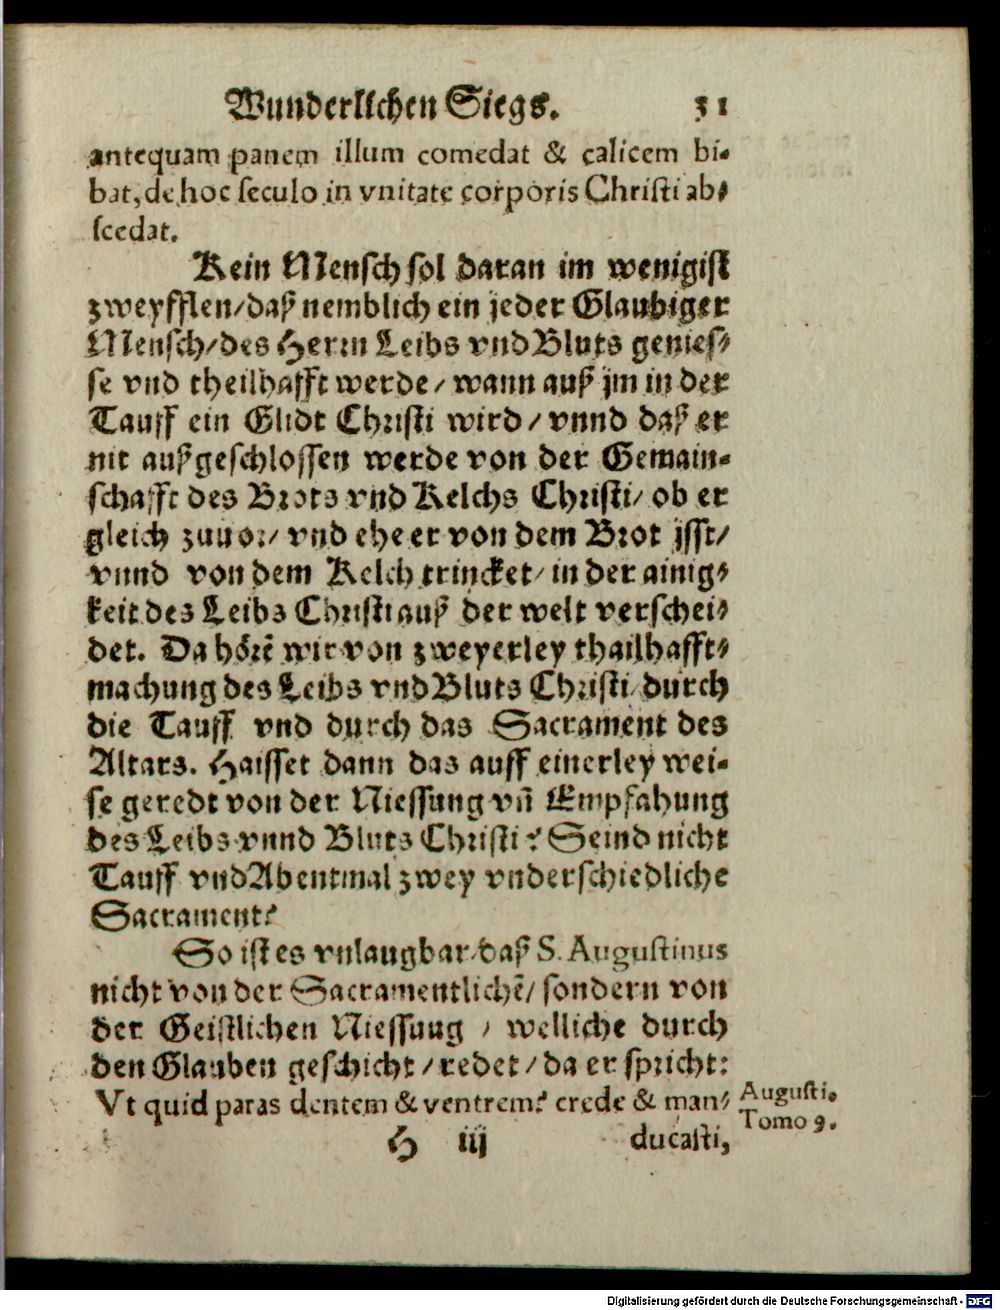 Wunderlichen Siegs. 31
antequam panem illum comedat & calicem bi-
bat, de hoc seculo in vnitate corporis Christi ab-
scedat.
Kein Mensch sol daran im wenigist
zweyfflen/ daß nemblich ein jeder Glaubiger
Mensch/ des Herrn Leibs vnd Bluts genies-
se vnd theilhafft werde/ wann auß jm in der
Tauff ein Glidt Christi wird/ vnnd daß er
nit außgeschlossen werde von der Gemain-
schafft des Brots vnd Kelchs Christi/ ob er
gleich zuuor/ vnd ehe er von dem Brot jsst/
vnnd von dem Kelch trincket/ in der ainig-
keit des Leibs Christi auß der welt verschei-
det. Da hörẽ wir von zweyerley thailhafft-
machung des Leibs vnd Bluts Christi/ durch
die Tauff vnd durch das Sacrament des
Altars. Haisset dann das auff einerley wei-
se geredt von der Niessung vñ Empfahung
des Leibs vnnd Bluts Christi? Seind nicht
Tauff vnd Abentmal zwey vnderschiedliche
Sacrament?
So ist es vnlaugbar/ daß S. Augustinus
nicht von der Sacramentlichẽ/ sondern von
der Geistlichen Niessung / welliche durch
den Glauben geschicht/ redet/ da er spricht:
Vt quid paras dentem & ventrem? crede & man-
Augusti.
Tomo 9.
H iij ducasti,
Digitalisierung gefördert durch die Deutsche Forschungsgemeinschaft - DFG